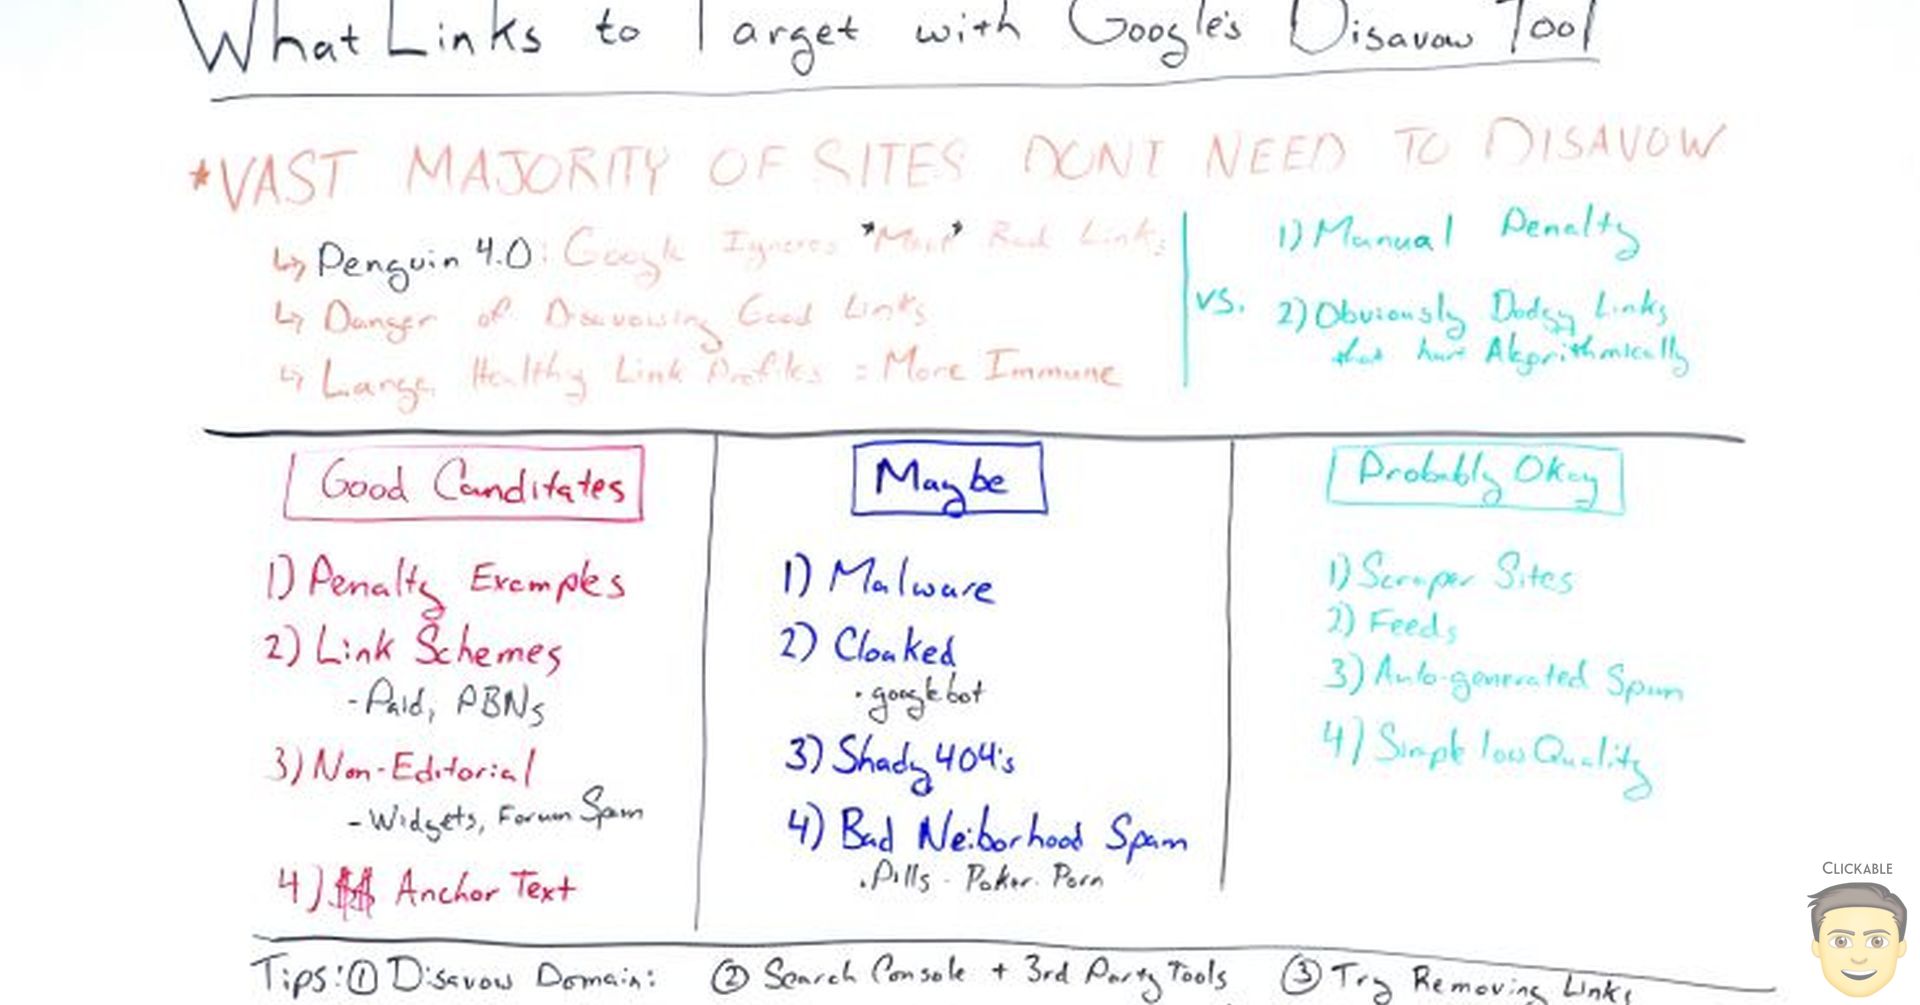 What Links to Target with Google's Disavow Tool
*VAST MAJORITY OF SITES DONT NEED TO DISAVOW
↳ Penguin 4.0: Google Ignores *Most* Bad Links
↳ Danger of Disavowing Good Links
↳ Large, Healthy Link Profiles = More Immune
vs.
1) Manual Penalty
2) Obviously Dodgy Links
that hurt Algorithmically
Good Canditates
1) Penalty Examples
2) Link Schemes
- Paid, PBNs
3) Non-Editorial
- Widgets, Forum Spam
4) $$ Anchor Text
Maybe
1) Malware
2) Cloaked
• googlebot
3) Shady 404's
4) Bad Neiborhood Spam
• Pills - Poker - Porn
Probably Okay
1) Scraper Sites
2) Feeds
3) Auto-generated Spam
4) Simple low Quality
Tips: ① Disavow Domain: ② Search Console + 3rd Party Tools ③ Try Removing Links
CLICKABLE